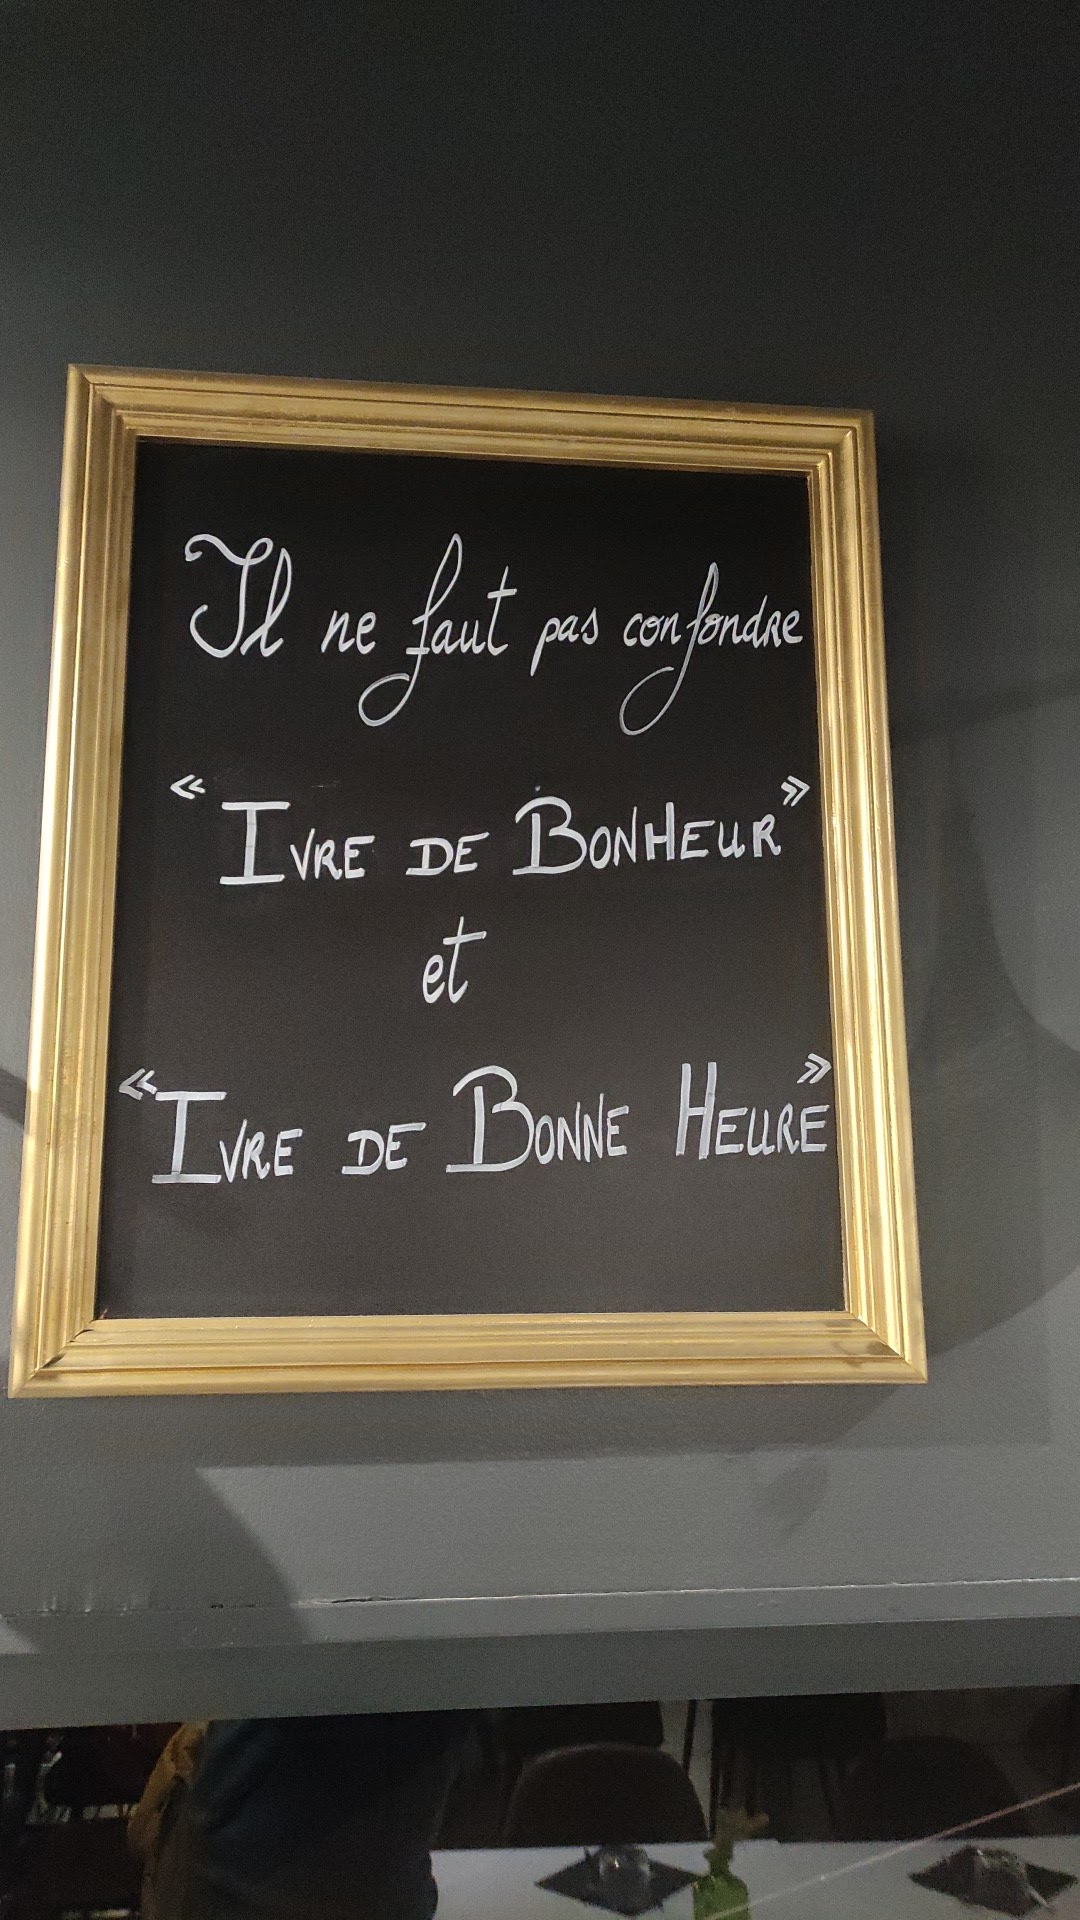 Il ne faut pas confondre
« Ivre de Bonheur »
et
« Ivre de Bonne Heure »